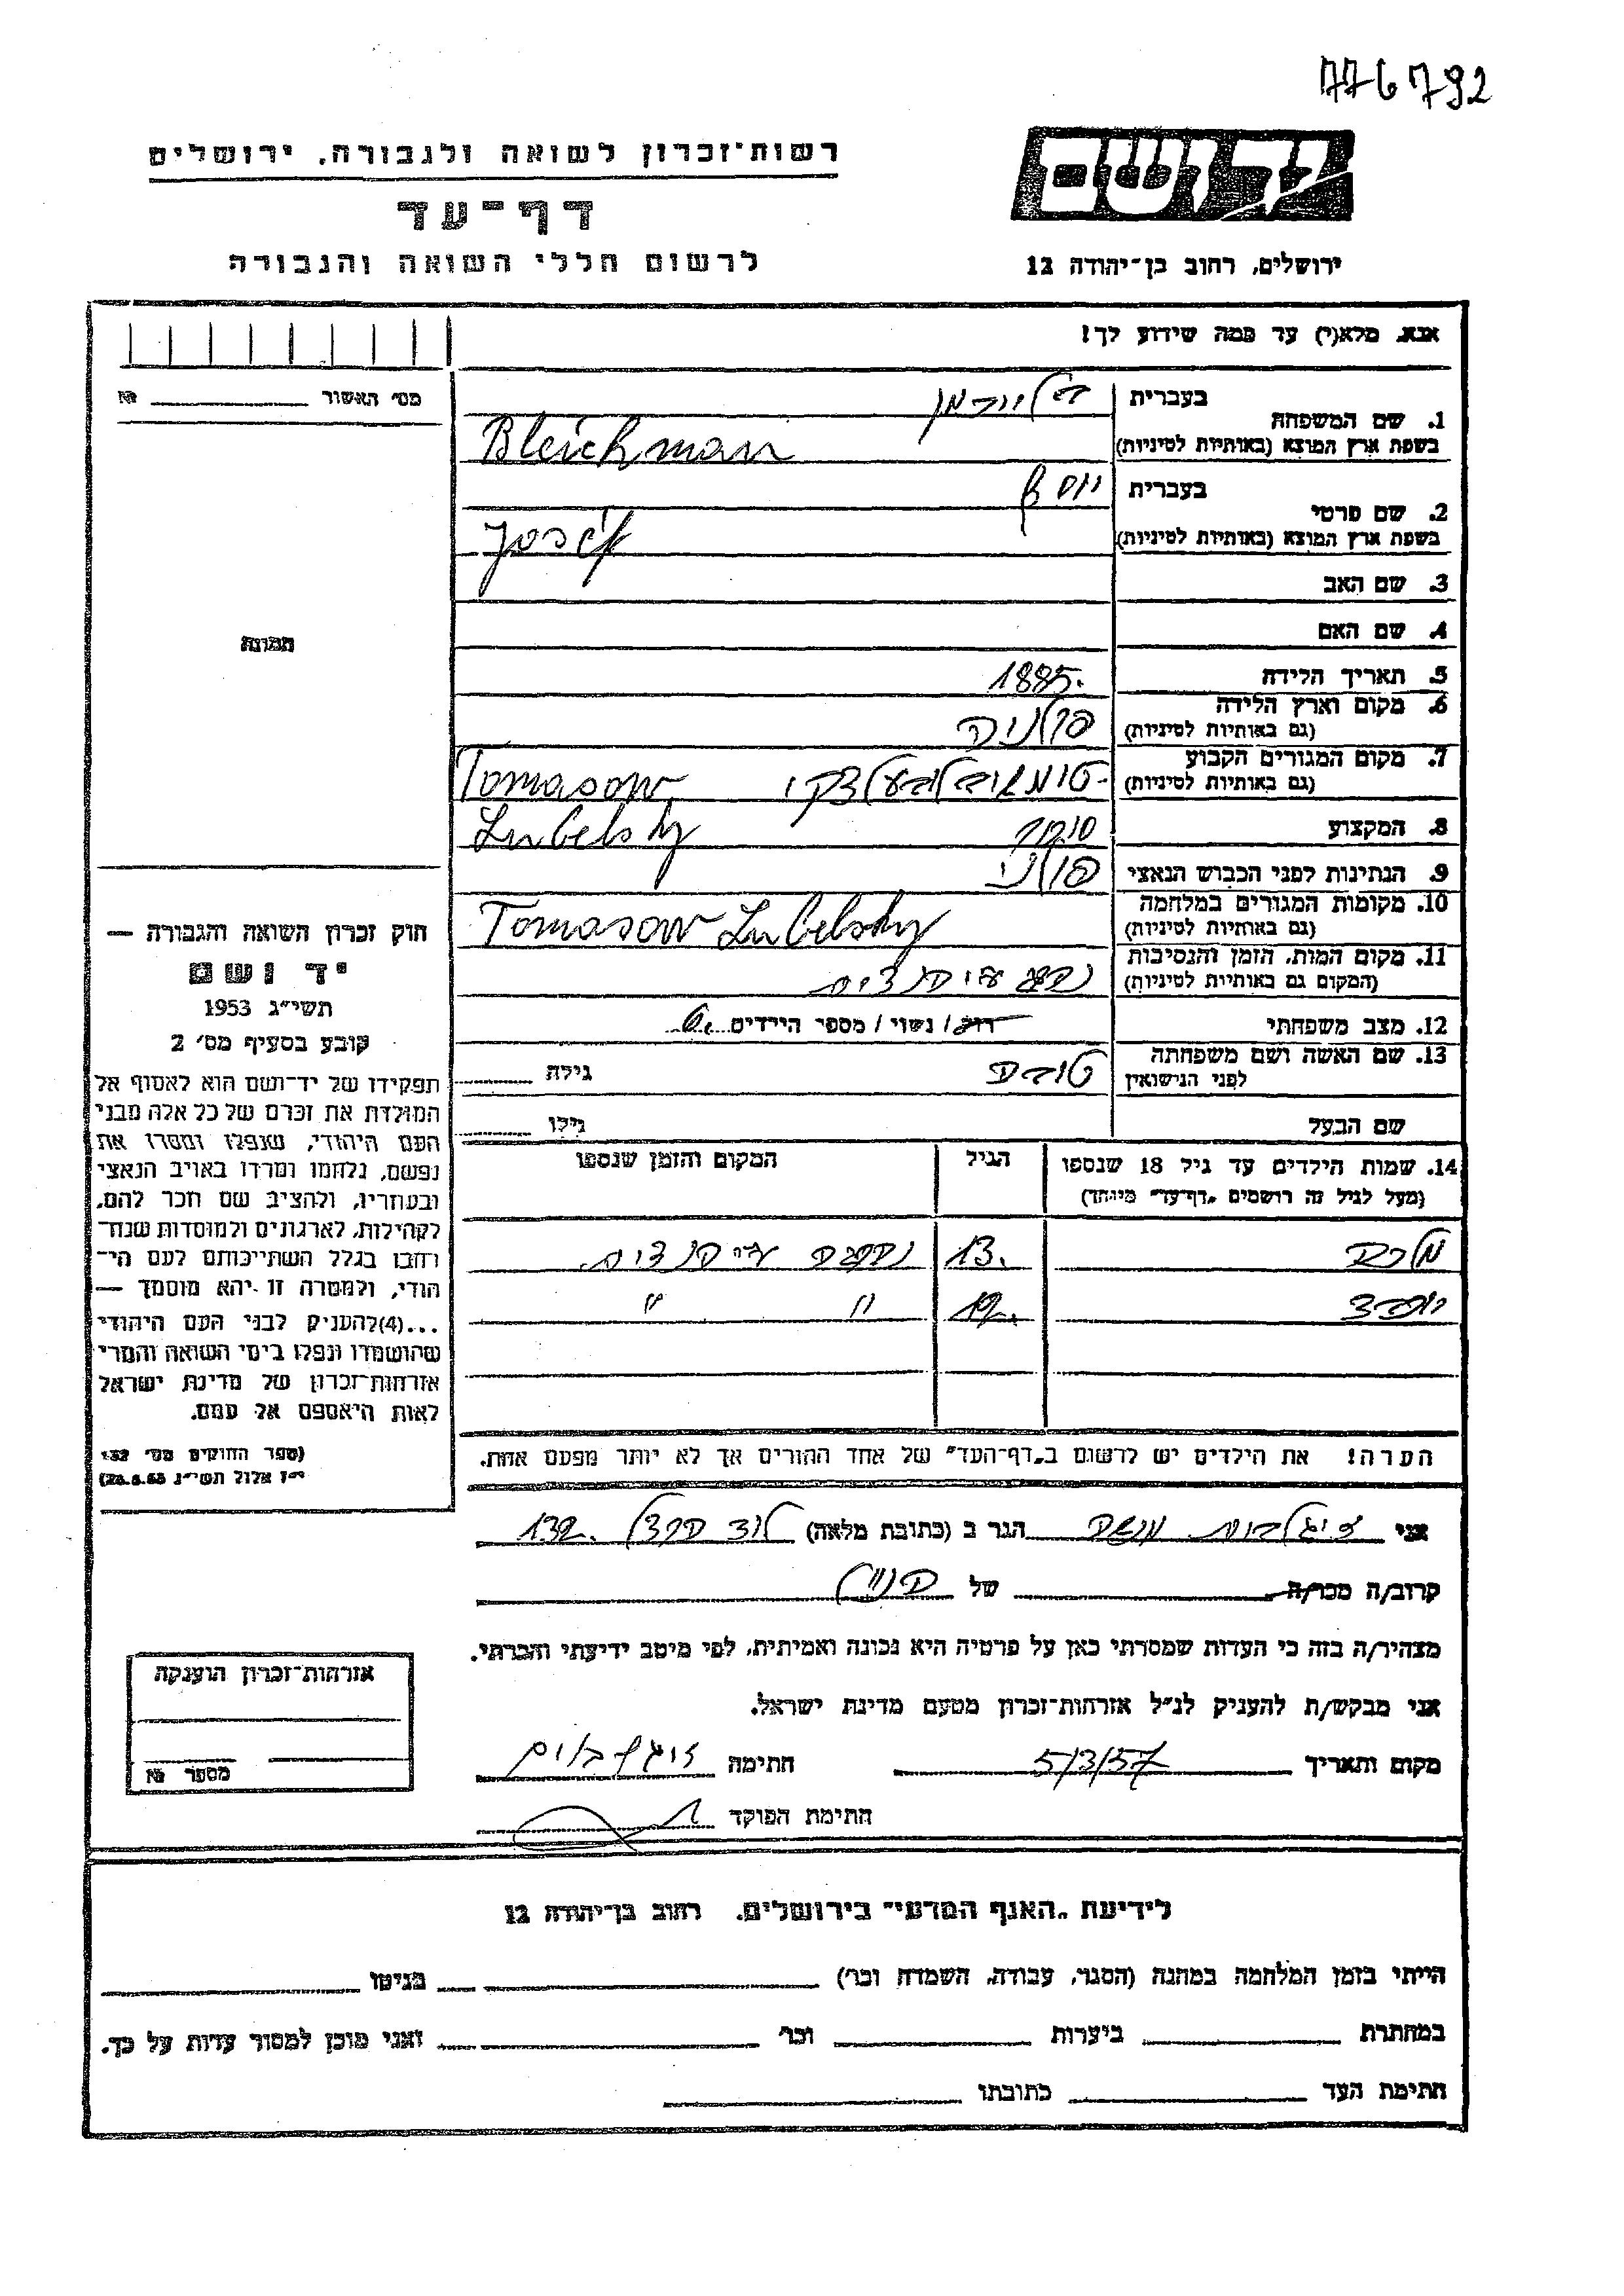 776792
רשות־זכרון לשואה ולגבורה, ירושלים
יד ושם
דף־עד
לרשום חללי השואה והגבורה
ירושלים, רחוב בן־יהודה 12
אנא, מלא(י) עד כמה שידוע לך!
מס׳ האשור
1. שם המשפחה
בעברית בליכמן
בשפת ארץ המוצא (באותיות לטיניות) Bleichman
2. שם פרטי
בעברית יוסף
בשפת ארץ המוצא (באותיות לטיניות) Josef
3. שם האב
4. שם האם
5. תאריך הלידה 1885.
6. מקום וארץ הלידה פולניה
(גם באותיות לטיניות)
7. מקום המגורים הקבוע
(גם באותיות לטיניות) Tomasow
Lubelsky
8. המקצוע סוחר
9. הנתינות לפני הכבוש הנאצי פולני
10. מקומות המגורים במלחמה
(גם באותיות לטיניות) Tomasow Lubelsky
11. מקום המות, הזמן והנסיבות
(המקום גם באותיות לטיניות) נספה ע״י הנצים
12. מצב משפחתי רווק/ נשוי/ מספר הילדים 6.
13. שם האשה ושם משפחתה טובה גילה
לפני הנישואין
שם הבעל גילו
14. שמות הילדים עד גיל 18 שנספו הגיל המקום והזמן שנספו
(מעל לגיל זה רושמים „דף־עד״ מיוחד)
מלכה 13. ע״י הנצים.
12. " "
הערה! את הילדים יש לרשום ב„דף־העד״ של אחד ההורים אך לא יותר מפעם אחת.
תמונה
חוק זכרון השואה והגבורה —
יד ושם
תשי״ג 1953
קובע בסעיף מס׳ 2
תפקידו של יד־ושם הוא לאסוף אל
המולדת את זכרם של כל אלה מבני
העם היהודי, שנפלו ומסרו את
נפשם, נלחמו ומרדו באויב הנאצי
ובעוזריו, ולהציב שם וזכר להם,
לקהילות, לארגונים ולמוסדות שנח־
רבו בגלל השתייכותם לעם הי־
הודי, ולמטרה זו יהא מוסמך —
...(4) להעניק לבני העם היהודי
שהושמדו ונפלו בימי השואה והמרי
אזרחות־זכרון של מדינת ישראל
לאות היאספם אל עמם.
(ספר החוקים מס׳ 132
י״ז אלול תשי״ג 28.8.53)
אני ציגלבוים משה הגר ב (כתובת מלאה) לוד 132.
קרוב/ה מכר/ה של הנ״ל
מצהיר/ה בזה כי העדות שמסרתי כאן על פרטיה היא נכונה ואמיתית, לפי מיטב ידיעתי והכרתי.
אני מבקש/ת להעניק לנ״ל אזרחות־זכרון מטעם מדינת ישראל.
מקום ותאריך 5/3/57 חתימה ציגלבוים
חתימת הפוקד
אזרחות־זכרון הוענקה
מספר
לידיעת „האגף המדעי״ בירושלים, רחוב בן־יהודה 12
הייתי בזמן המלחמה במחנה (הסגר, עבודה, השמדה וכו׳) בגיטו
במחתרת ביערות וכו׳ ואני מוכן למסור עדות על כך.
חתימת העד כתובתו